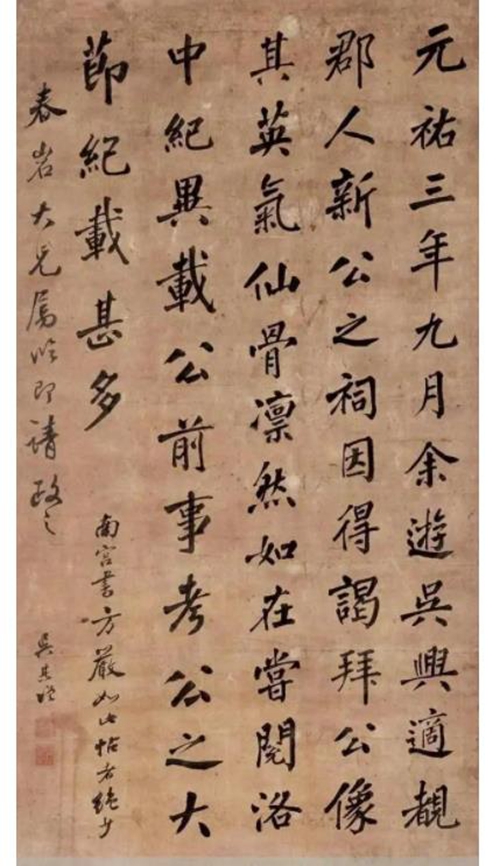 元祐三年九月余遊吳興適覩
郡人新公之祠因得謁拜公像
其英氣仙骨凛然如在嘗閱洛
中紀異載公前事考公之大
節紀載甚多
南宮書方嚴如此帖者絶少
春岩大兄屬臨即請政之
吳其